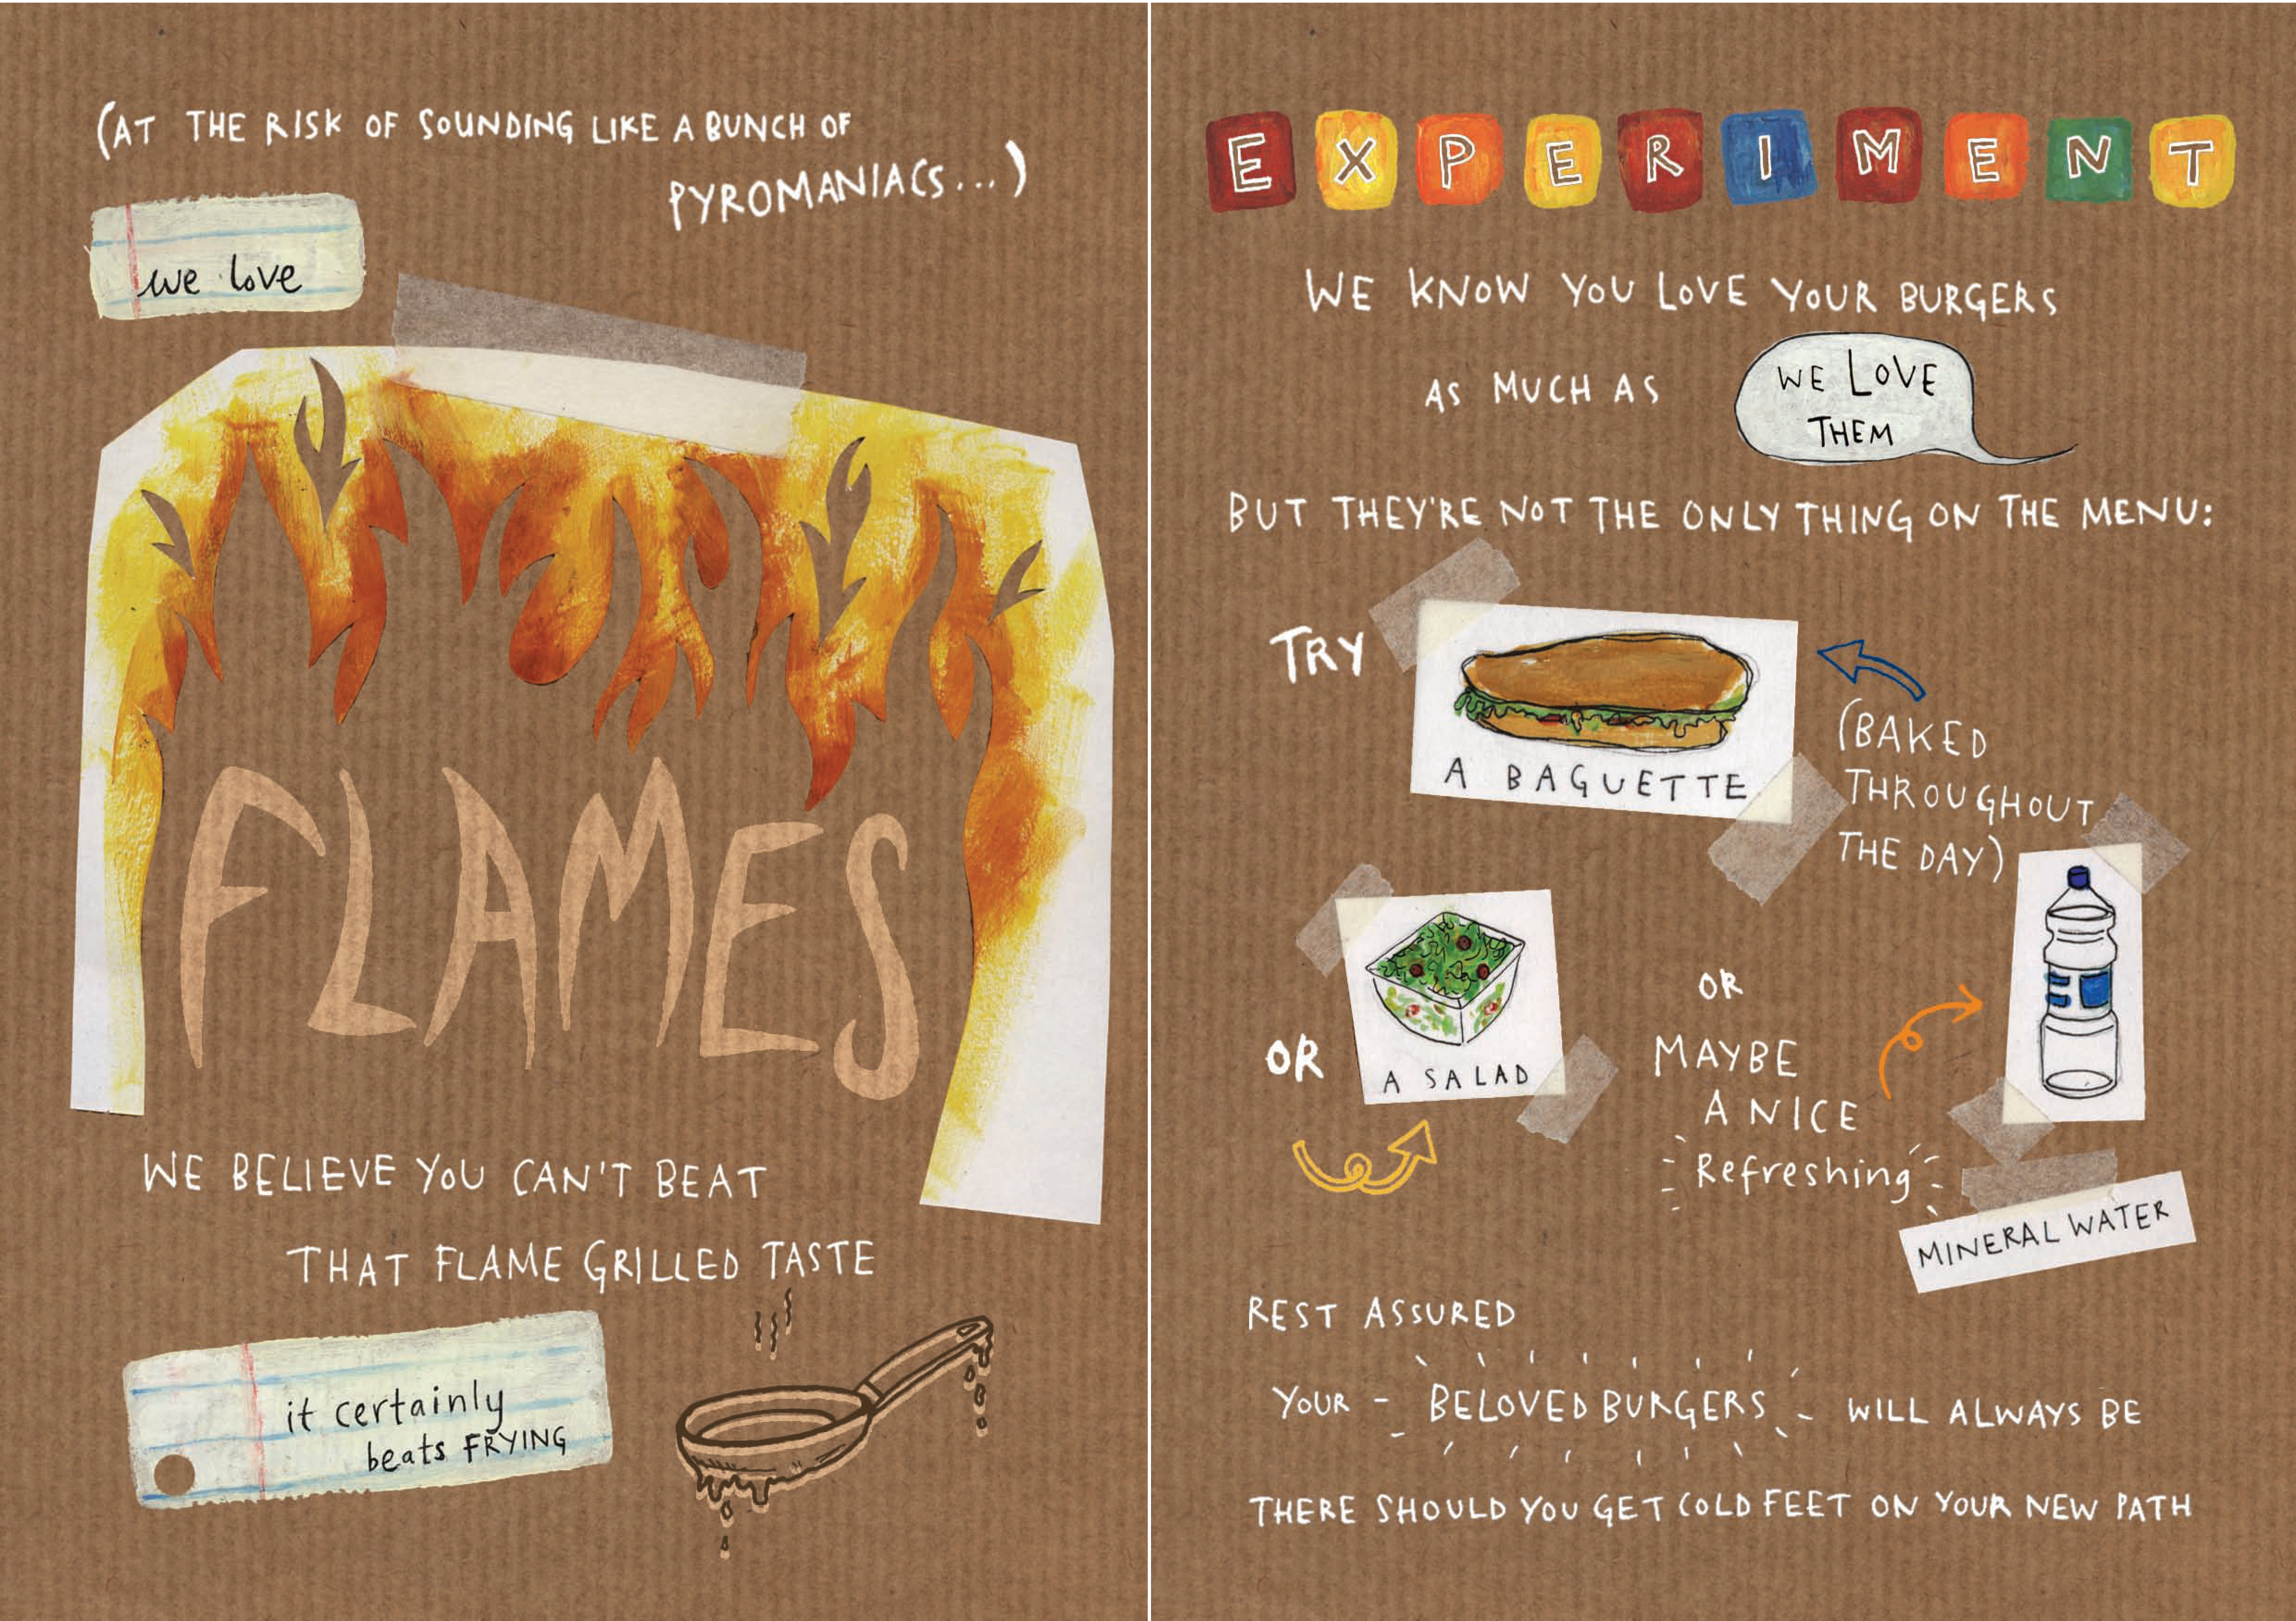 (AT THE RISK OF SOUNDING LIKE A BUNCH OF
PYROMANIACS...)
we love
FLAMES
WE BELIEVE YOU CAN'T BEAT
THAT FLAME GRILLED TASTE
it certainly
beats FRYING
EXPERIMENT
WE KNOW YOU LOVE YOUR BURGERS
AS MUCH AS
WE LOVE
THEM
BUT THEY'RE NOT THE ONLY THING ON THE MENU:
TRY
A BAGUETTE
(BAKED
THROUGHOUT
THE DAY)
OR
A SALAD
OR
MAYBE
A NICE
Refreshing
MINERAL WATER
REST ASSURED
YOUR - BELOVED BURGERS - WILL ALWAYS BE
THERE SHOULD YOU GET COLD FEET ON YOUR NEW PATH